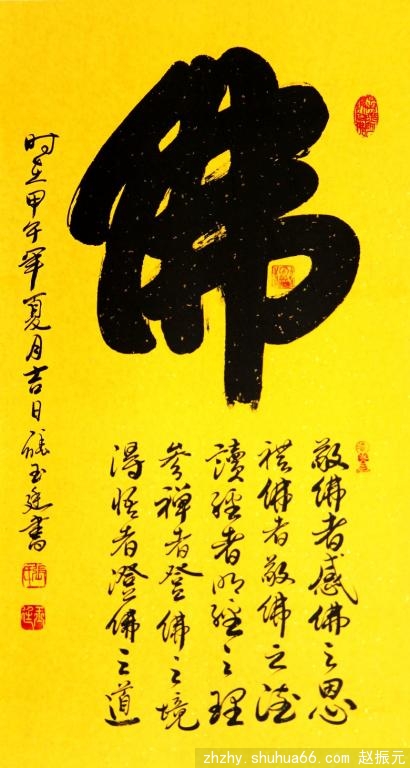 佛
敬佛者感佛之恩
禮佛者敬佛之
讀經者明經之理
參禪者登佛之境
得悟者澄佛之道
时在甲午年夏月吉日 玉廷書
zhzhy.shuhua66.com 赵振元